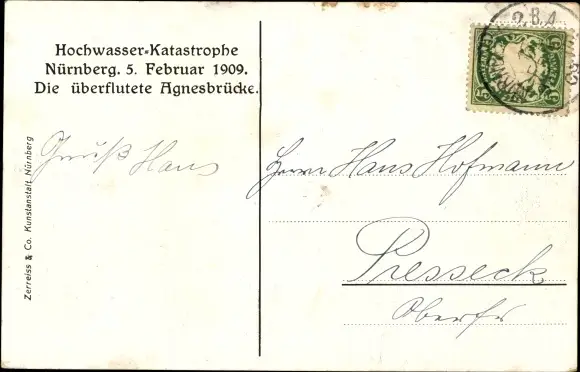 Hochwasser-Katastrophe
Nürnberg. 5. Februar 1909.
Die überflutete Agnesbrücke.
Gruß Hans
Herrn Hans Hofmann
Presseck
Oberfr
Zerreiss & Co. Kunstanstalt, Nürnberg
5
5